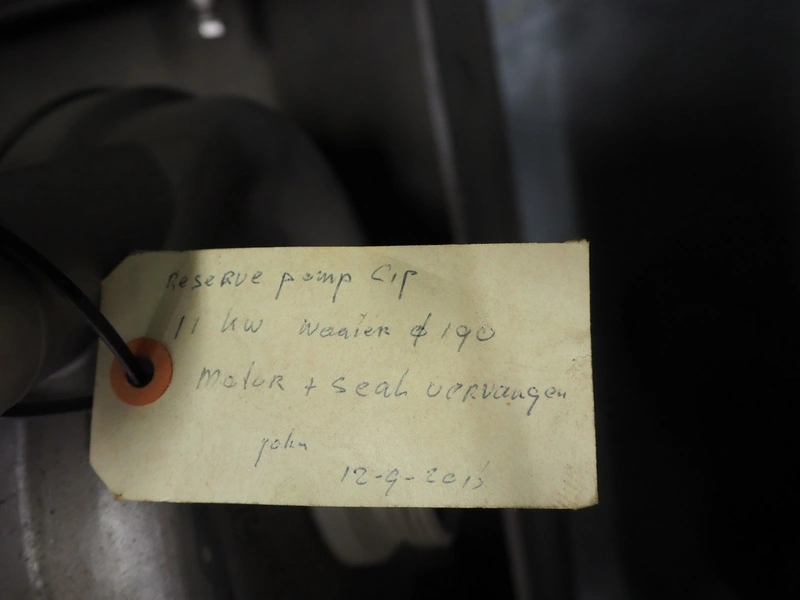 Reserve pomp Cip
11 kW Waaier ϕ 190
Motor + Seal vervangen
John